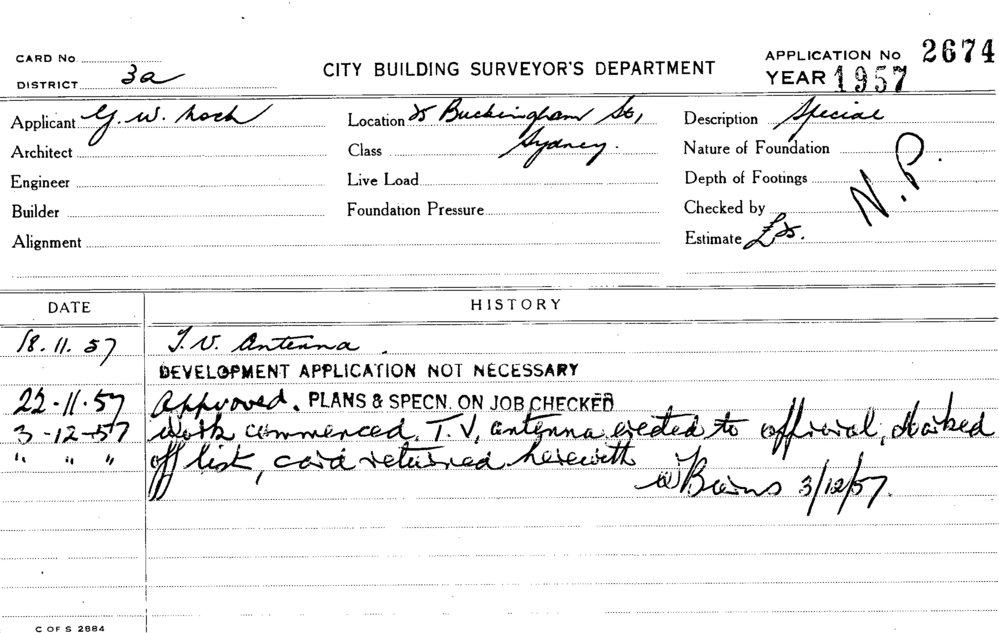 CARD No
DISTRICT 3a
CITY BUILDING SURVEYOR'S DEPARTMENT
APPLICATION No 2674
YEAR 1957
Applicant G. W. Location Buckingham St., Description Special
Architect Class Sydney. Nature of Foundation
Engineer Live Load Depth of Footings N.P.
Builder Foundation Pressure Checked by
Alignment Estimate £
DATE HISTORY
18.11.57 T.V. Antenna.
DEVELOPMENT APPLICATION NOT NECESSARY
22-11-57 Approved. PLANS & SPECN. ON JOB CHECKED
3-12-57 Work commenced, T.V. antenna erected to approval, Marked
" " " off list, card returned herewith
3/12/57.
C OF S 2884